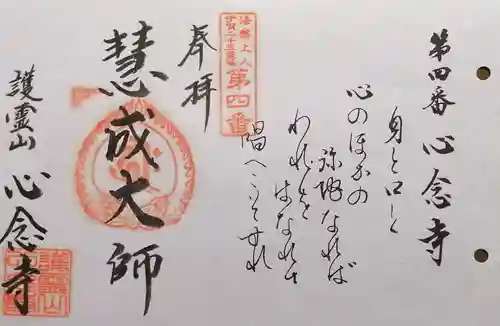 第四番 心念寺
身と口と
心のほかの
弥陀なれば
われをはなれて
唱へこそすれ
法然上人
伊賀二十五霊場
第四番
奉拝
慧成大師
護霊山
心念寺